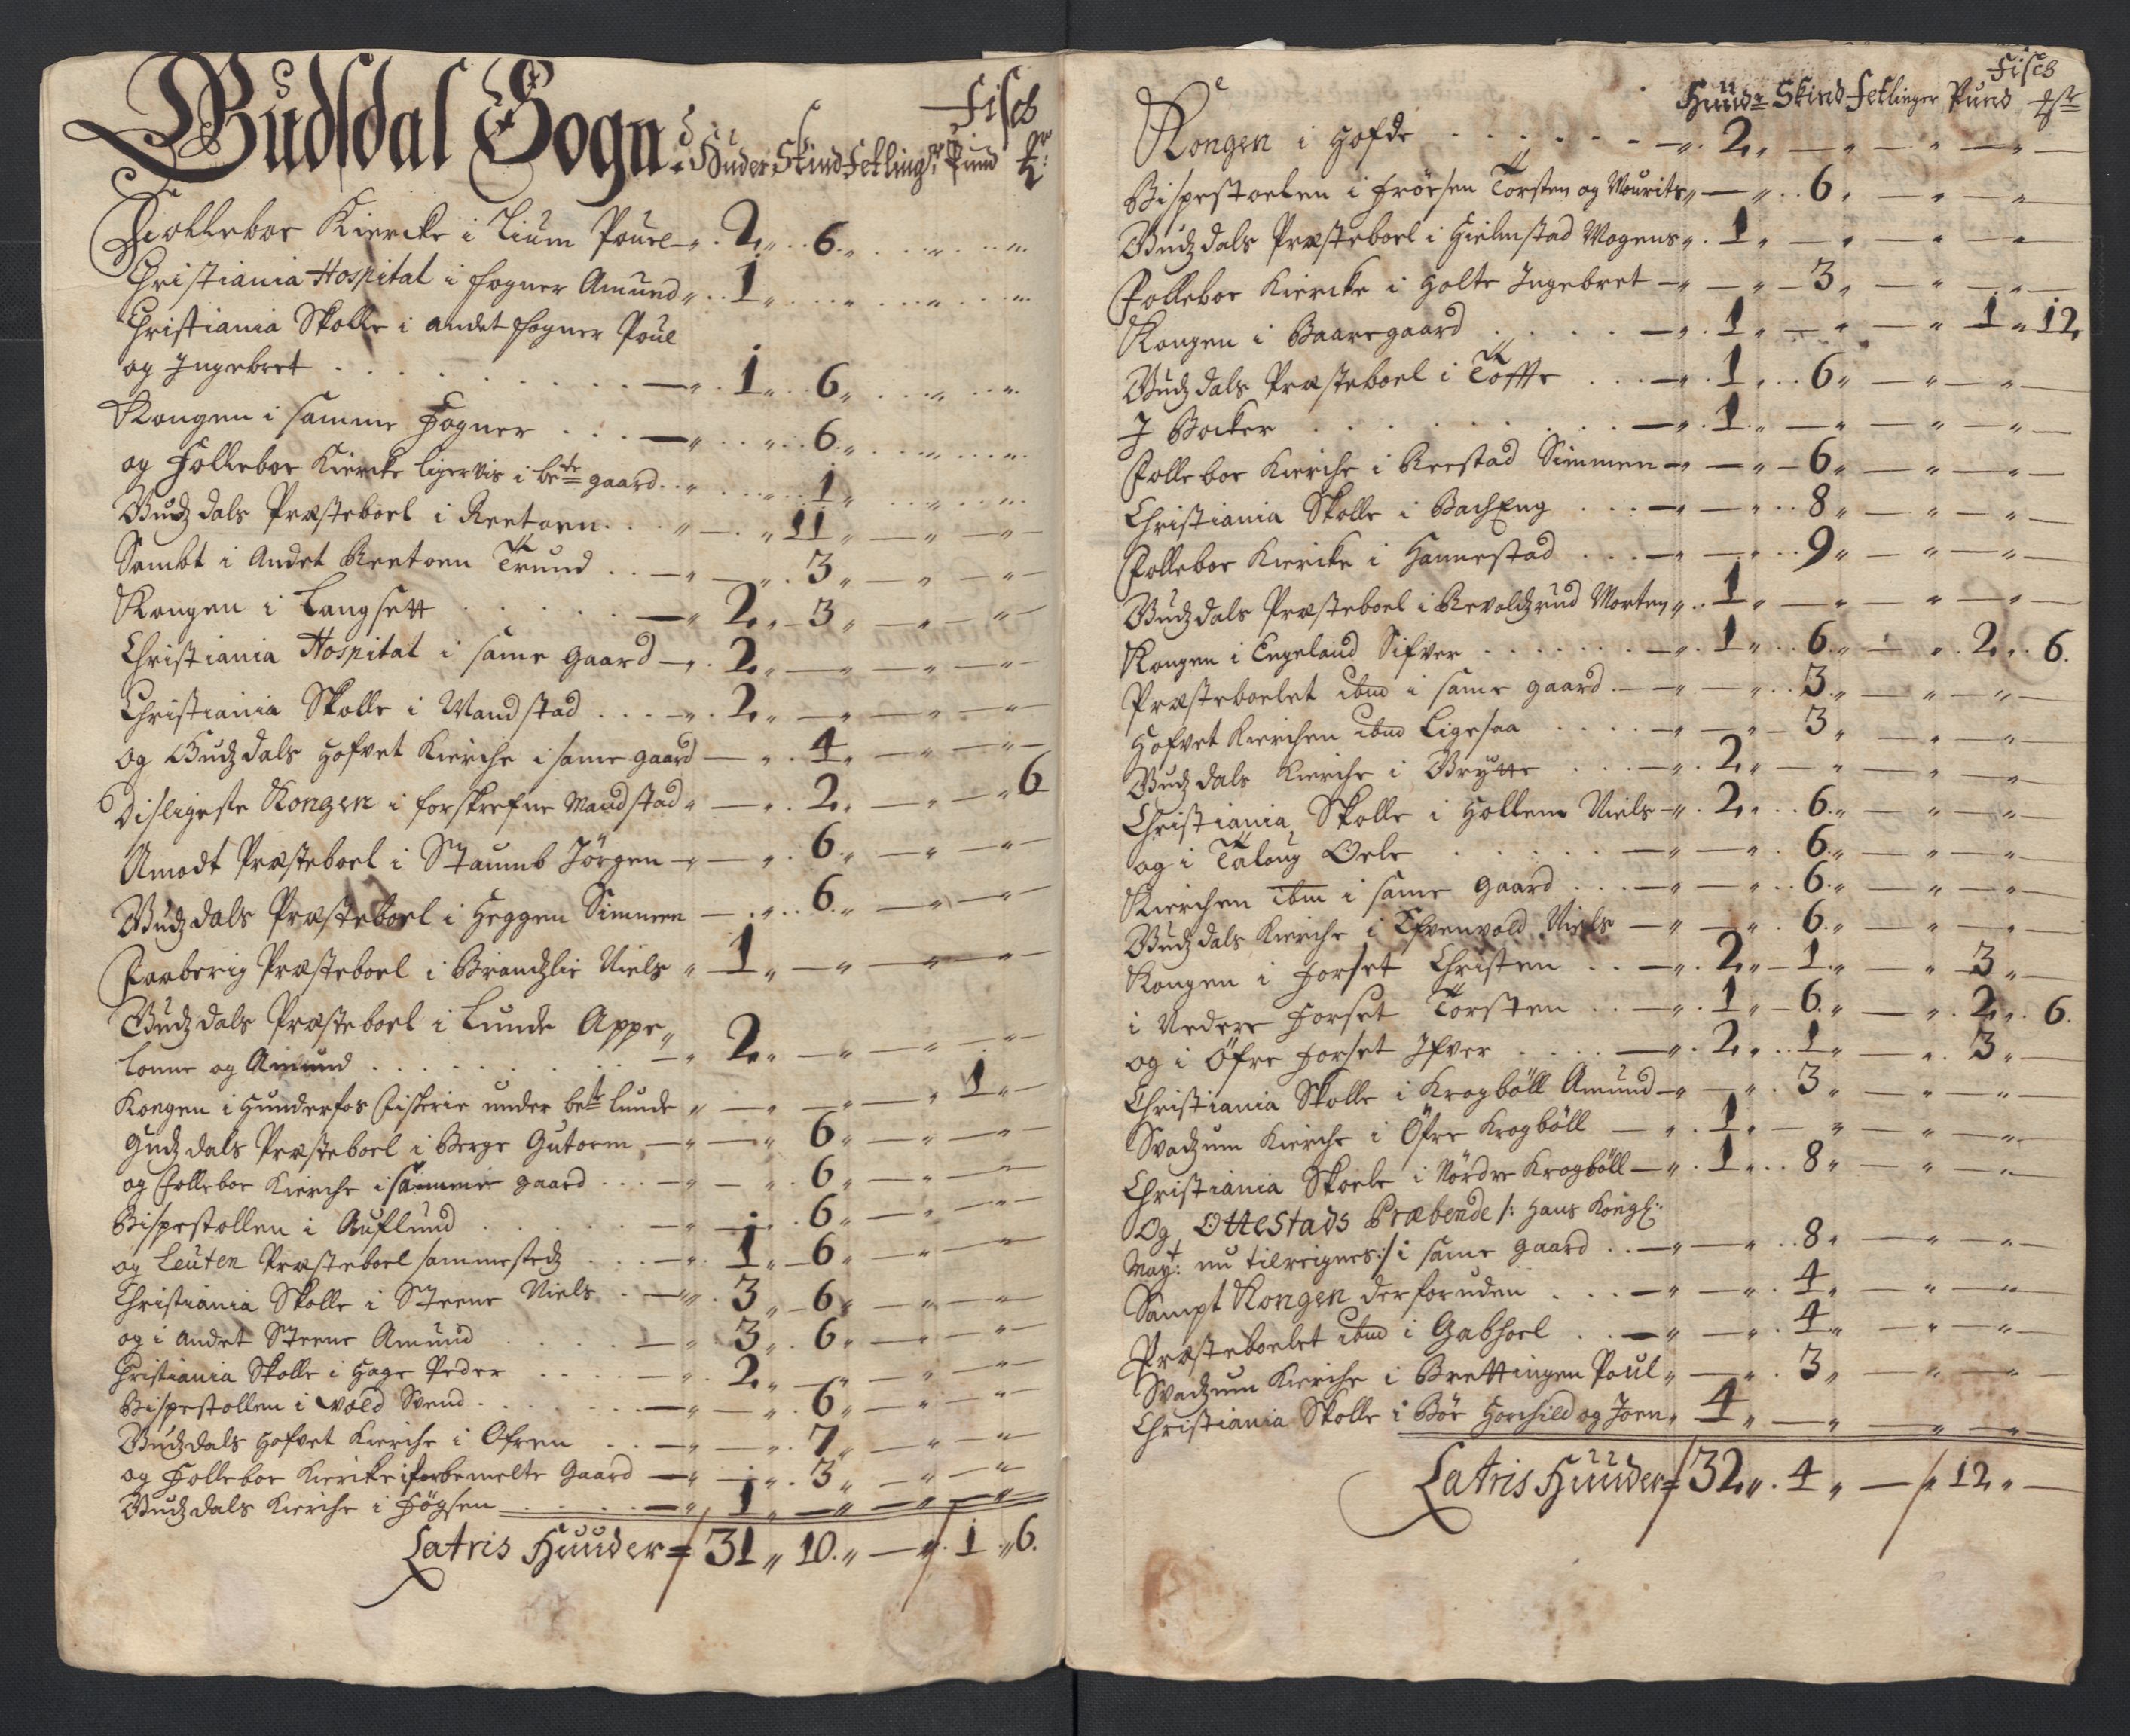 Gudsdal Sogn. Huder Skind Fetlingr Fisch Pund
Folleboe Kiercke i Lium Pouel 2 6
Christiania Hospital i Fogner Amund 1
Christiania Skolle i andet Fogner Poul
og Ingebret 1 6
Kongen i samme Fogner 6
og Folleboe Kiercke ligervis i bete gaard 1
Gudzdals Præsteboel i Reetoen 11
Sambt i Andet Reetoen Trund 3
Kongen i Langsett 2 3
Christiania Hospital i same gaard 2
Christiania Skolle i Mandstad 2
og Gudzdals Hofvet Kierche i same gaard 4
Disligeste Kongen i forskrefne Mandstad 2 6
Aamodt Præsteboel i Staumb Jörgen 6
Gudzdals Præsteboel i Heggen Simmen 6
Faaberig Præsteboel i Brandzlie Niels 1
Gudzdals Præsteboel i Lunde Appe
lonne og Amund 2
Kongen i Hunderfos Fiskerie under bete Lunde 1
Gudzdals Præsteboel i Berge Gutorm 6
og Folleboe Kierche i samme gaard 6
Bispestollen i Auflund 6
og Leuten Præsteboel sammestedz 1 6
Christiania Skolle i Steene Niels 3 6
og i Andet Steene Amund 3 6
Christiania Skolle i Hage Peder 2
Bispestollen i Vold Svend 6
Gudzdals Hofvet Kierche i Ofren 7
og Folleboe Kiercke i forbemelte Gaard 3
Gudzdals Kierche i Högsen 1
Latris Huuder 31 10 1 6.
Huudr Skind Fetlinger Pund Fisch
Kongen i Hofde 2
Bispestoelen i Frösen Torsten og Mourits 6
Gudzdals Præsteboel i Hielmstad Mogens 1
Folleboe Kiercke i Holte Ingebret 3
Kongen i Baaregaard 1 1 12
Gudzdals Præsteboel i Tofte 1 6
I Bocker 1
Folleboe Kierche i Reestad Simmen 6
Christiania Skolle i BachEng 8
Folleboe Kiercke i Hannestad 9
Gudzdals Præsteboel i Revoldzrud Morten 1
Kongen i Engeland Sifver 1 6 2 6.
Præsteboelet ibid i same gaard 3
Hofvet Kierchen ibid Ligesaa 3
Gudzdals Kierche i Brytte 2
Christiania Skolle i Hollem Niels 2 6
og i Taloug Oele 6
Kierchen ibm i same gaard 6
Gudzdals Kierche i Efvenvold Niels 6
Kongen i Forset Christen 2 1 3
i Nedere Forset Torsten 1 6 2 6.
og i Öfre Forset Ifver 2 1 3
Christiania Skolle i Krogböll Amund 3
Svadzum Kierche i Öfre Krogböll 1
Christiania Skoele i Nördre Krogböll 1 8
Og Ottestads Præbende /: Hans Kongl:
Mayt: nu tilreignes :/ i same gaard 8
Sampt Kongen derforuden 4
Præsteboelet ibid i Gabhoel 4
Svadzum Kierche i Brettingen Poul 3
Christiania Skolle i Böe Horchild og Joen 4
Latris Huuder 32 4 12